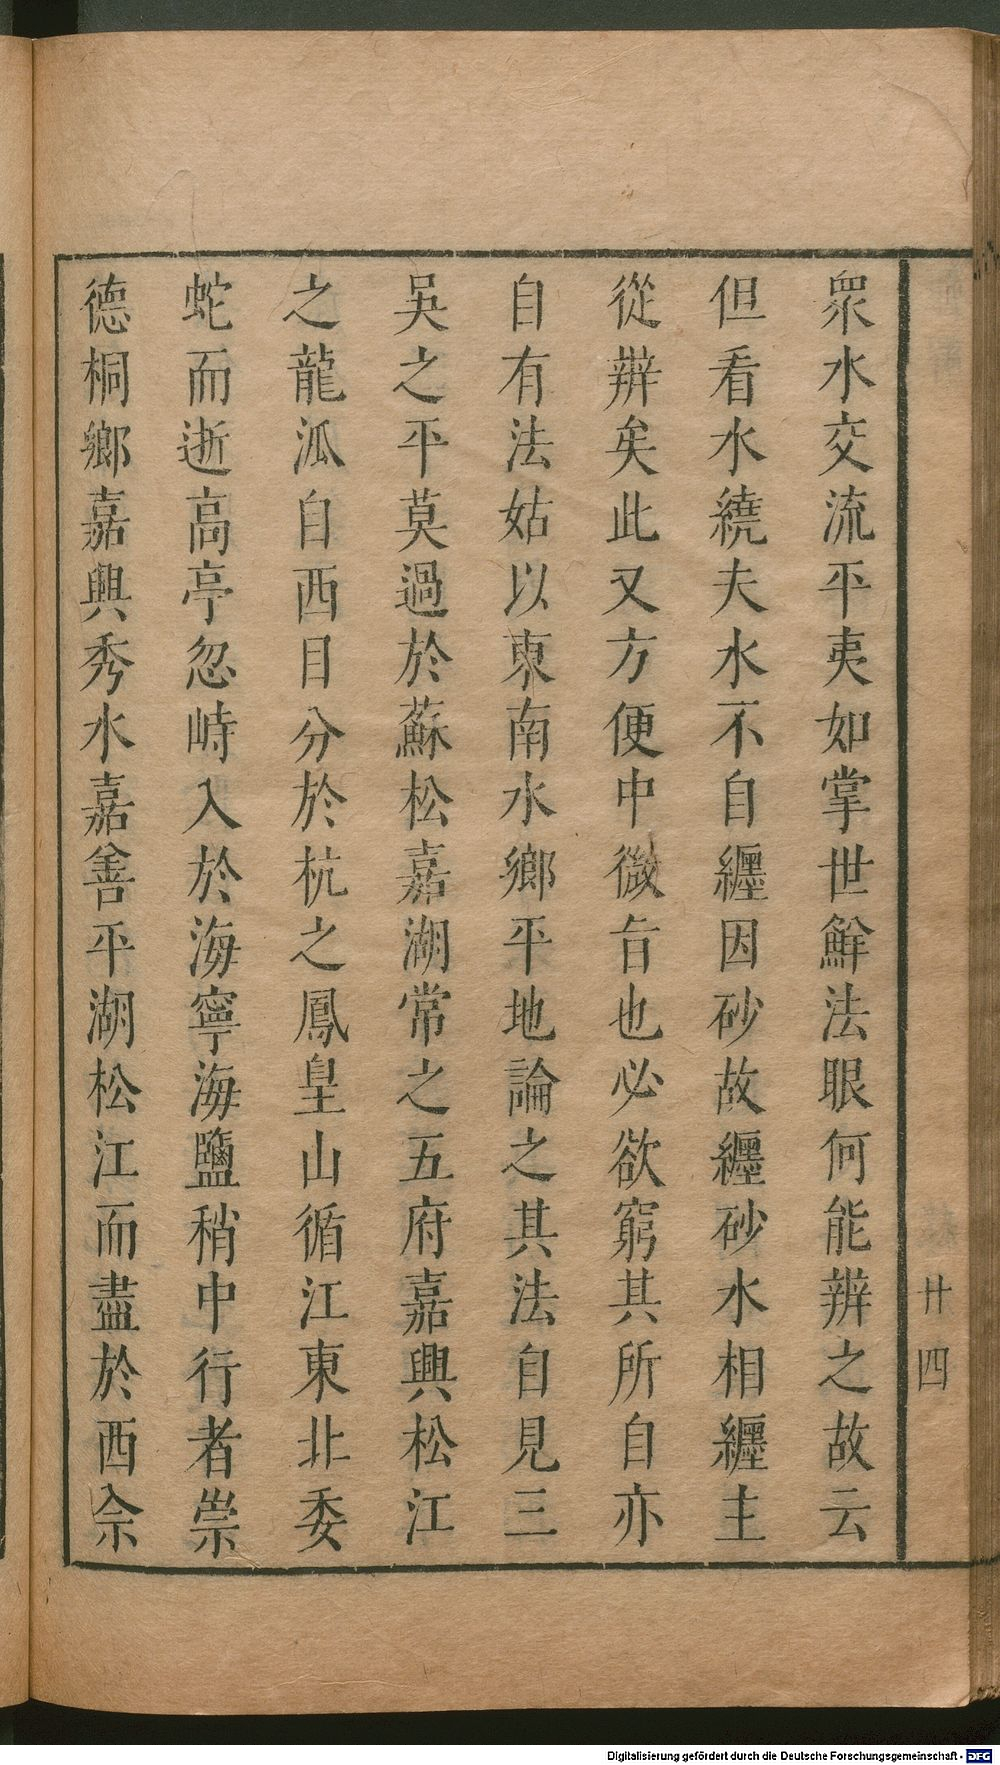 眾水交流平夷如掌世鮮法眼何能辨之故云
但看水繞夫水不自纏因砂故纏砂水相纏主
從辨矣此又方便中微旨也必欲窮其所自亦
自有法姑以東南水鄉平地論之其法自見三
吳之平莫過於蘇松嘉湖常之五府嘉興松江
之龍派自西目分於杭之鳳皇山循江東北委
蛇而逝高亭忽峙入於海寧海鹽稍中行者崇
德桐鄉嘉興秀水嘉善平湖松江而盡於西佘
廿四
Digitalisierung gefördert durch die Deutsche Forschungsgemeinschaft - DFG